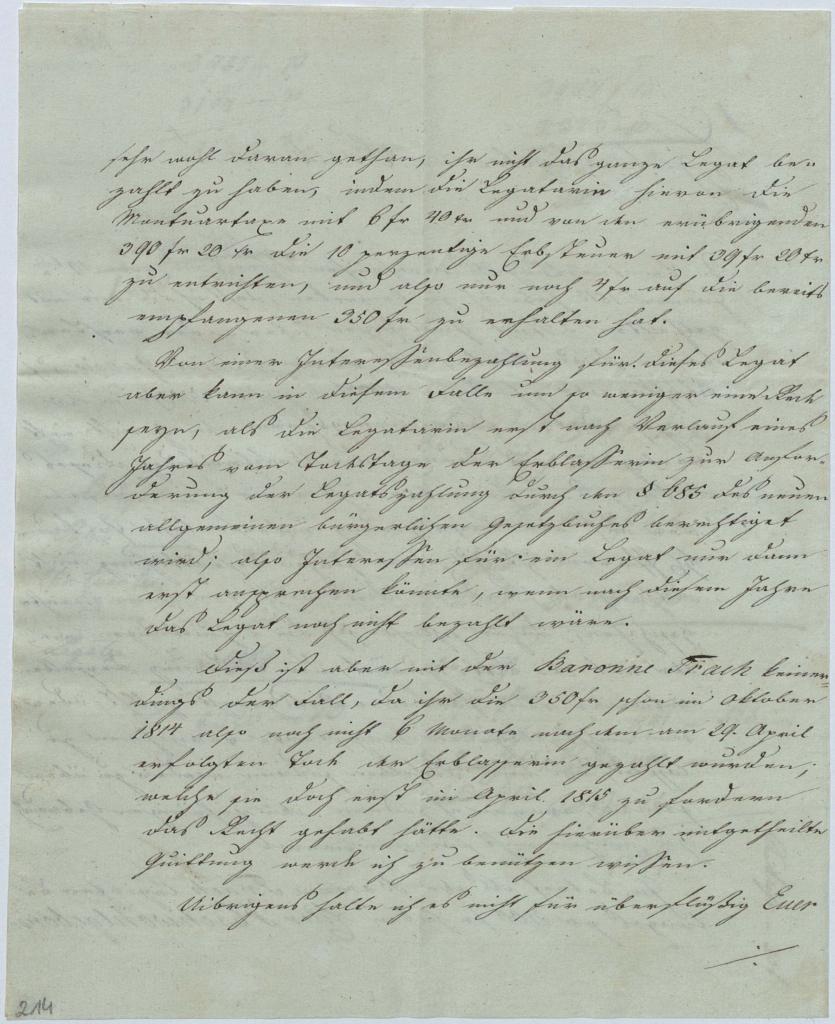 sehr wohl daran gethan, ihr nicht das ganze Legat be-
zahlt zu haben, indem die Legatarin hievon die
Mortuartaxe mit 6 fr 40 xr und von den erübrigenden
390 fr 20 xr die 10 perzentige Erbsteuer mit 39 fr 20 xr
zu entrichten, und also nur noch 4 fr auf die bereits
empfangenen 350 fr zu erhalten hat.
Von einer Interessenbezahlung für dieses Legat
aber kann in diesem Falle um so weniger eine Rede
seyn, als die Legatarin erst nach Verlauf eines
Jahres vom Todestage der Erblasserin zur Anfor-
derung der Legatszahlung durch den § 685 des neuen
allgemeinen bürgerlichen Gesetzbuches berechtiget
wird; also Interessen für ein Legat nur dann
erst ansprechen könnte, wenn nach diesem Jahre
das Legat noch nicht bezahlt wäre.
Dieß ist aber mit der Baronine Trach keiner-
dings der Fall, da ihr die 350 fr schon im Oktober
1814 also noch nicht 6 Monate nach dem am 29. April
erfolgten Tode der Erblasserin gezahlt wurden;
welche sie doch erst im April 1815 zu fordern
das Recht gehabt hätte. Die hierüber mitgetheilte
Quittung werde ich zu benützen wissen.
Uibrigens halte ich es nicht für überflüßig Euer
./.
214